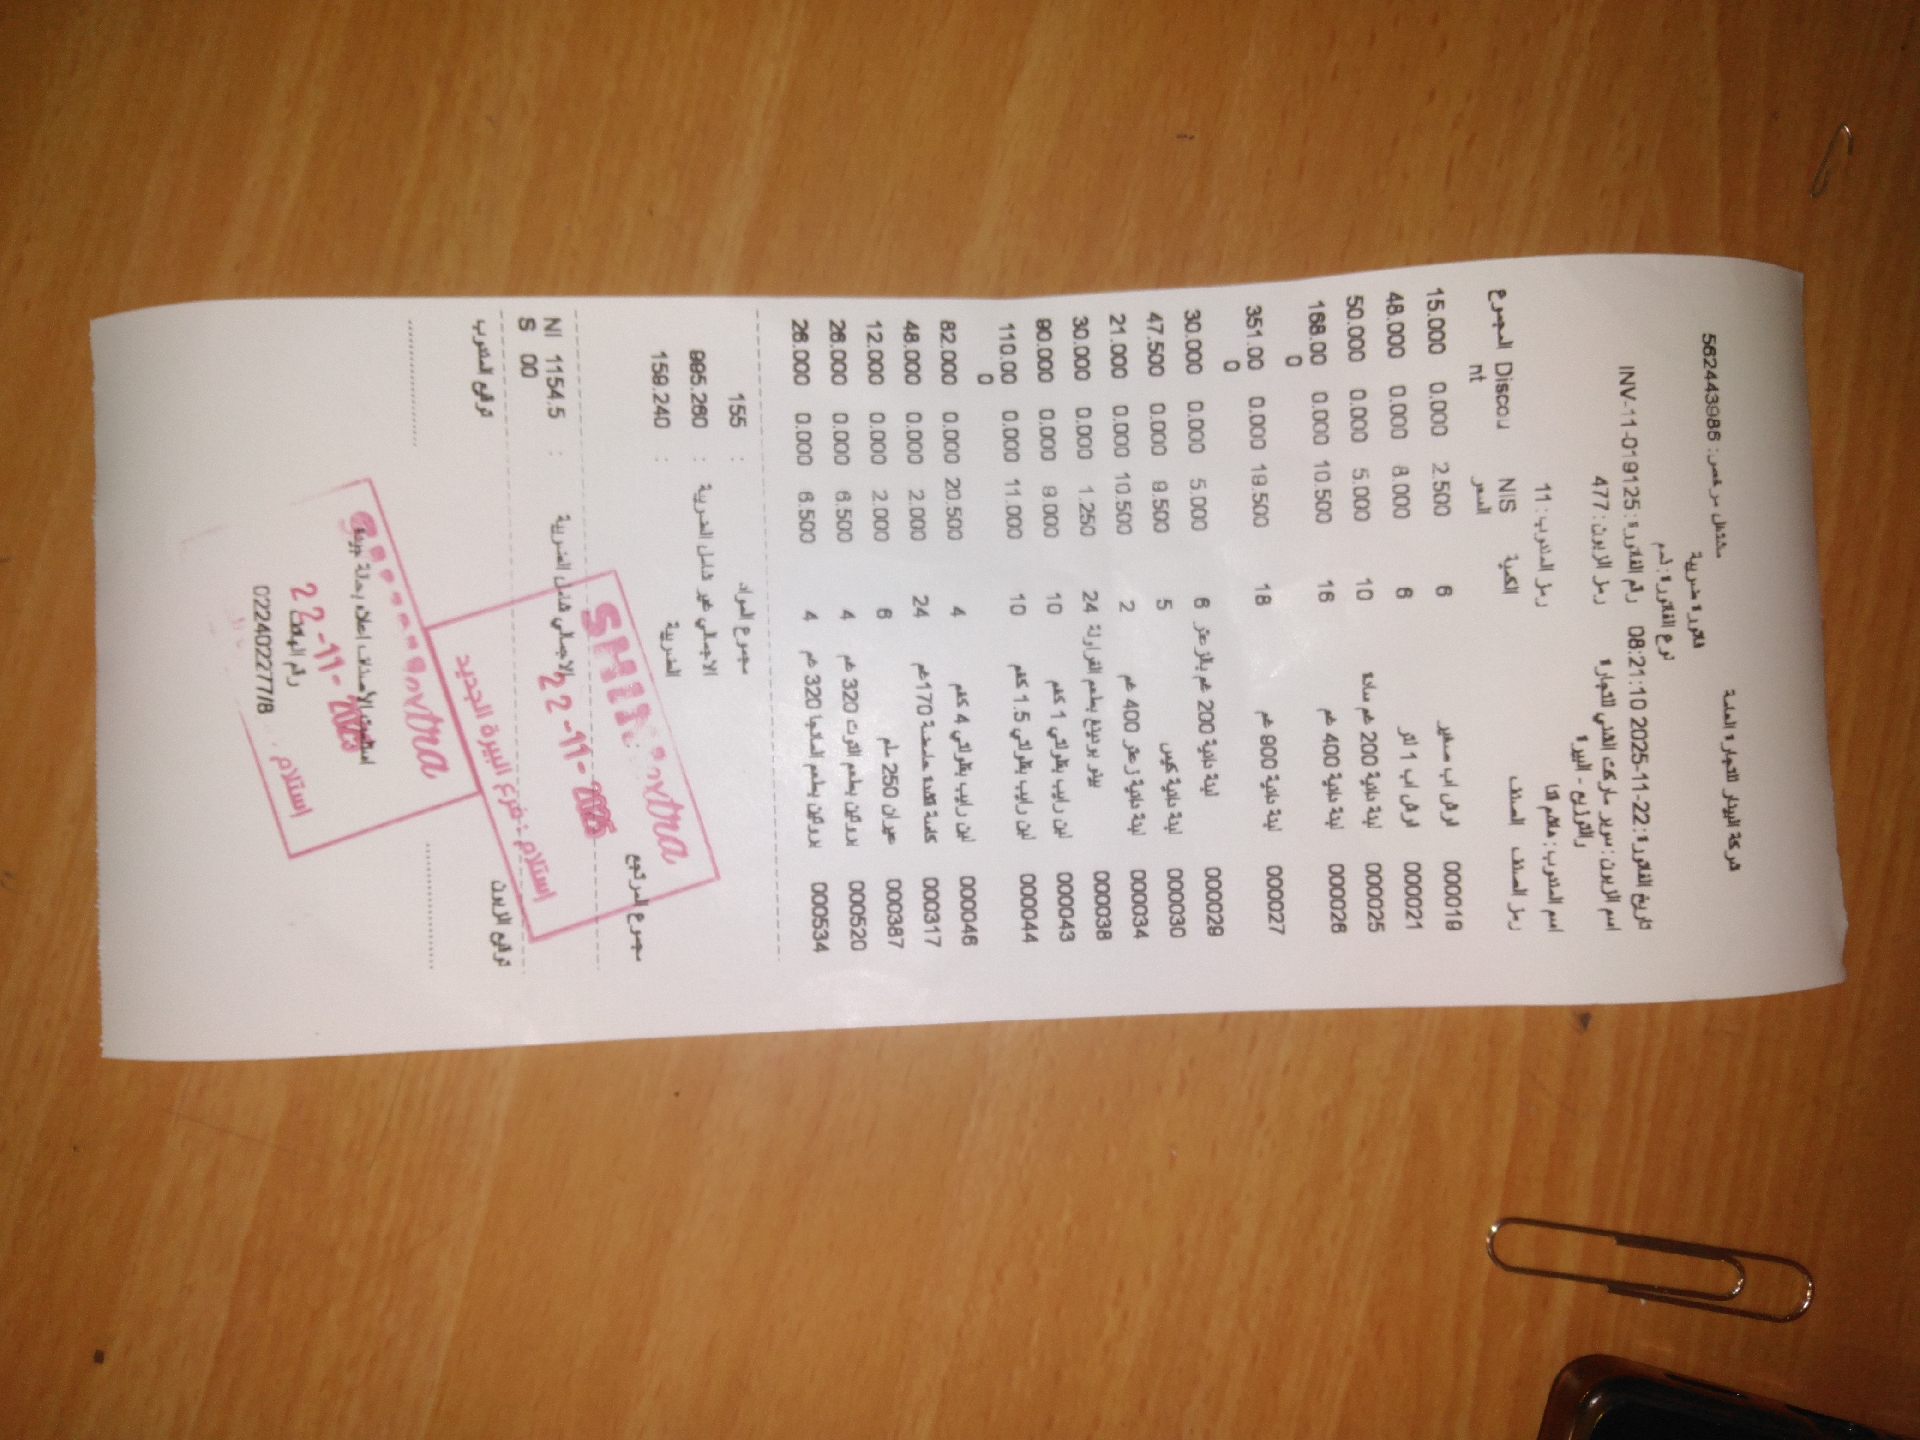 شركة البيدار للتجارة العامة
مشتغل مرخص: 562443986
فاتورة ضريبية
نوع الفاتورة: ذمم
تاريخ الفاتورة: 22-11-2025 08:21:10 رقم الفاتورة: INV-11-019125
اسم الزبون: سوبر ماركت الشني للتجارة رمز الزبون: 477
والتوزيع - البيرة
رمز المندوب: 11
رمز الصنف الصنف الكمية NIS السعر Discount المجموع
000019 لارش اب صغير 6 2.500 0.000 15.000
000021 لارش اب 1 لتر 6 8.000 0.000 48.000
000025 لبنة بلدية 200 غم سادة 10 5.000 0.000 50.000
000026 لبنة بلدية 400 غم 16 10.500 0.000 168.000
000027 لبنة بلدية 900 غم 18 19.500 0.000 351.000
000029 لبنة بلدية 200 غم بالزعتر 6 5.000 0.000 30.000
000030 لبنة بلدية كيس 5 9.500 0.000 47.500
000034 لبنة بلدية زعتر 400 غم 2 10.500 0.000 21.000
000038 بيتو بودينغ بطعم الفراولة 24 1.250 0.000 30.000
000043 لبن رايب بقولتي 1 كغم 10 9.000 0.000 90.000
000044 لبن رايب بقولتي 1.5 كغم 10 11.000 0.000 110.000
000046 لبن رايب بقولتي 4 كغم 4 20.500 0.000 82.000
000317 170غم 24 2.000 0.000 48.000
000387 250 ملم 6 2.000 0.000 12.000
000520 بروتين بطعم التوت 320 غم 4 6.500 0.000 26.000
000534 بروتين بطعم المانجا 320 غم 4 6.500 0.000 26.000
مجموع المواد : 155
الاجمالي غير شامل الضريبة : 995.260
الضريبة : 159.240
مجموع المرتجع
الاجمالي شامل الضريبة : 1154.500 NIS
SHINI extra
22-11-2025
استلام: فرع البيرة الجديد
توقيع الزبون
توقيع المندوب
extra
استلمت الأصناف اعلاه بحالة جيدة
22-11-2025
رقم الهاتف
022402277/8
استلام